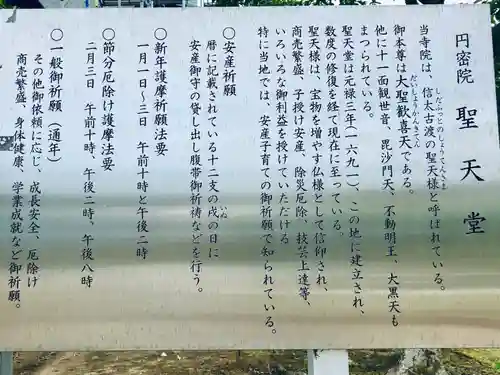 円密院 聖天堂
当寺院は、信太古渡の聖天様と呼ばれている。
しだふっとのしょうてんさま
御本尊は大聖歓喜天である。
だいしょうかんきてん
他に十一面観世音、毘沙門天、不動明王、大黒天も
まつられている。
聖天堂は元禄三年(一六九一)、この地に建立され、
数度の修復を経て現在に至っている。
聖天様は、宝物を増やす仏様として信仰され、
商売繁盛、子授け安産、除災厄除、技芸上達等、
いろいろな御利益を授けていただける
特に当地では、安産子育ての御祈願で知られている。
〇安産祈願
暦に記載されている十二支の戌の日に
いぬ
安産御守の貸し出し腹帯御祈祷などを行う。
〇新年護摩祈願法要
一月一日~三日 午前十時と午後二時
〇節分厄除け護摩法要
二月三日 午前十時、午後二時、午後八時
〇一般御祈願(通年)
その他御依頼に応じ、成長安全、厄除け
商売繁盛、身体健康、学業成就など御祈願。